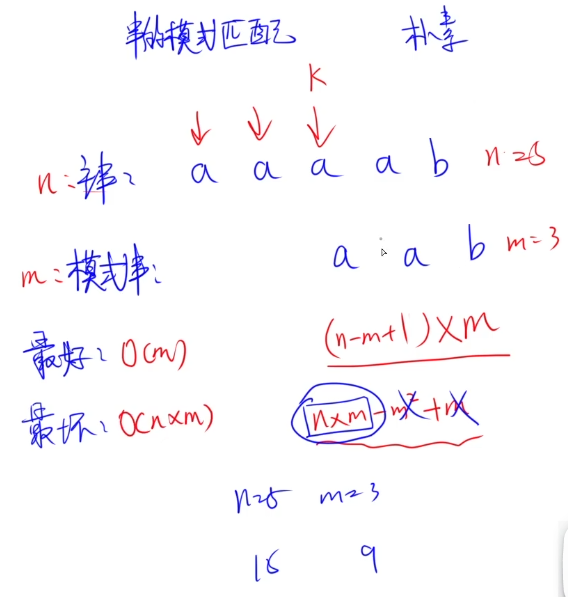 串的模式匹配 朴素
K
n:主串: a a a a b n=5
m:模式串: a a b m=3
最好:O(m) (n-m+1)×m
最坏:O(n×m) n×m-m²+m
n=5 m=3
15 9